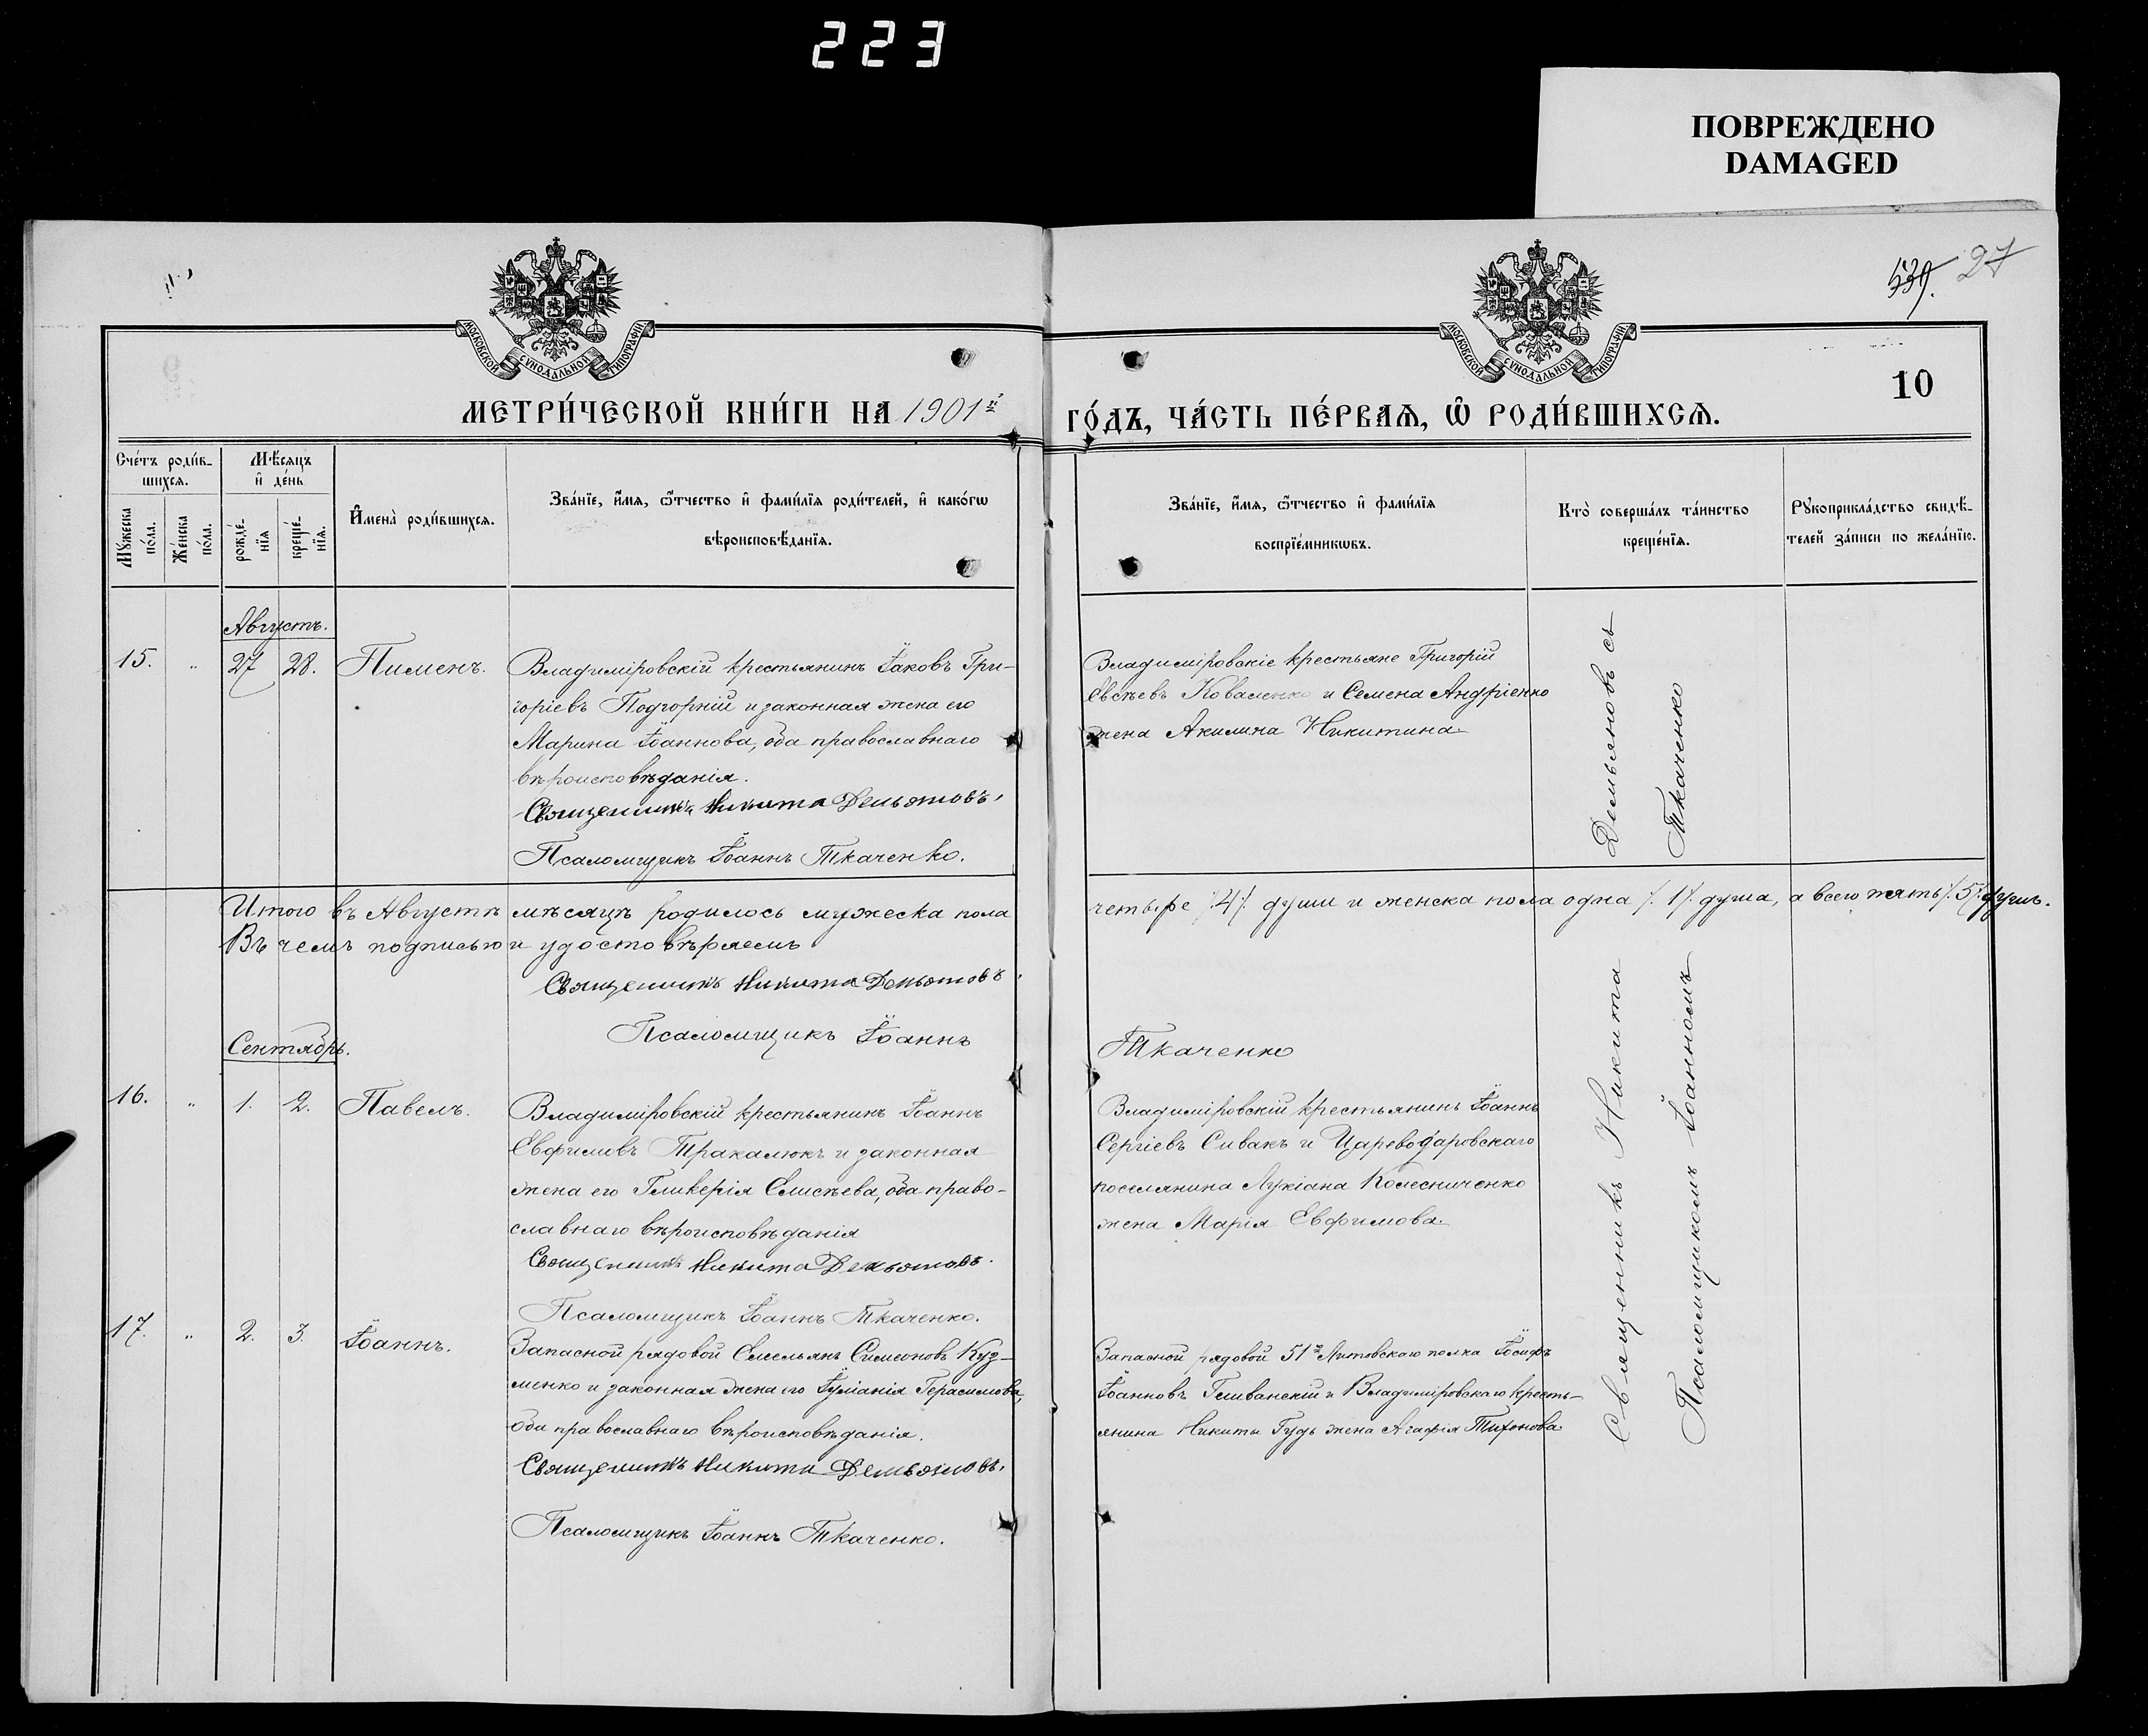 223
ПОВРЕЖДЕНО
DAMAGED
539. 27
МОСКОВСКОЙ СУНОДАЛЬНОЙ ТИПОГРАФІИ
МОСКОВСКОЙ СУНОДАЛЬНОЙ ТИПОГРАФІИ
10
МЕТРИ́ЧЕСКОЙ КНИ́ГИ НА 1901й
ГО́ДЪ, ЧА́СТЬ ПЕ́РВАѦ, Ѡ҆ РОДИ́ВШИХСѦ.
Сче́тъ роди́в-
шихсѧ.
Мꙋ́жеска по́ла.
Же́нска по́ла.
Мѣ́сяцъ и҆ де́нь
рожде́-нїѧ
креще́-нїѧ.
И҆мена̀ роди́вшихсѧ.
Зва́нїе, и҆́мѧ, ѻ҆́тчество и҆ фами́лїѧ роди́телей, и҆ како́гѡ
вѣроисповѣ́данїѧ.
Зва́нїе, и҆́мѧ, ѻ҆́тчество и҆ фами́лїѧ
воспрїе́мникѡвъ.
Кто̀ соверша́лъ та́инство
креще́нїѧ.
Рꙋкоприкла́дство свидѣ́-
телей за́писи по жела́нїю.
Августъ.
15. " 27 28. Пименъ.
Владиміровскій крестьянинъ Іаковъ Гри-
горіевъ Подгорній и законная жена его
Марина Іоаннова, оба православнаго
вѣроисповѣданія.
Священникъ Никита Демьяновъ.
Псаломщикъ Іоаннъ Ткаченко.
Владиміровскіе крестьяне Григорій
Евсѣевъ Коваленко и Семена Андріенко
жена Акилина Никитина.
Итого въ Августѣ мѣсяцѣ родилось мужеска пола четыре /4/. души и женска пола одна /. 1/. душа, а всего пять /.5/. душъ.
Въ чемъ подписью и удостовѣряемъ
Священникъ Никита Демьяновъ.
Псаломщикъ Іоаннъ Ткаченко
Сентябрь.
16. " 1. 2. Павелъ.
Владиміровскій крестьянинъ Іоаннъ
Евфимовъ Тракалюкъ и законная
жена его Гликерія Елисѣева, оба право-
славнаго вѣроисповѣданія
Священникъ Никита Демьяновъ.
Псаломщикъ Іоаннъ Ткаченко.
Владиміровскій крестьянинъ Іоаннъ
Сергіевъ Сивакъ и Цареводаровскаго
поселянина Лукіана Колесниченко
жена Марія Евфимова.
17. " 2. 3. Іоаннъ.
Запасной рядовой Емельянъ Симеоновъ Куз-
менко и законная жена его Іуліанія Герасимова,
оба православнаго вѣроисповѣданія.
Священникъ Никита Демьяновъ.
Псаломщикъ Іоаннъ Ткаченко.
Запасной рядовой 51го Литовскаго полка Іосифъ
Іоанновъ и Владиміровскаго кресть-
янина Никиты Гудь жена Агафія Тихонова
Священникъ Никита Демьяновъ съ
Псаломщикомъ Іоанномъ Ткаченко